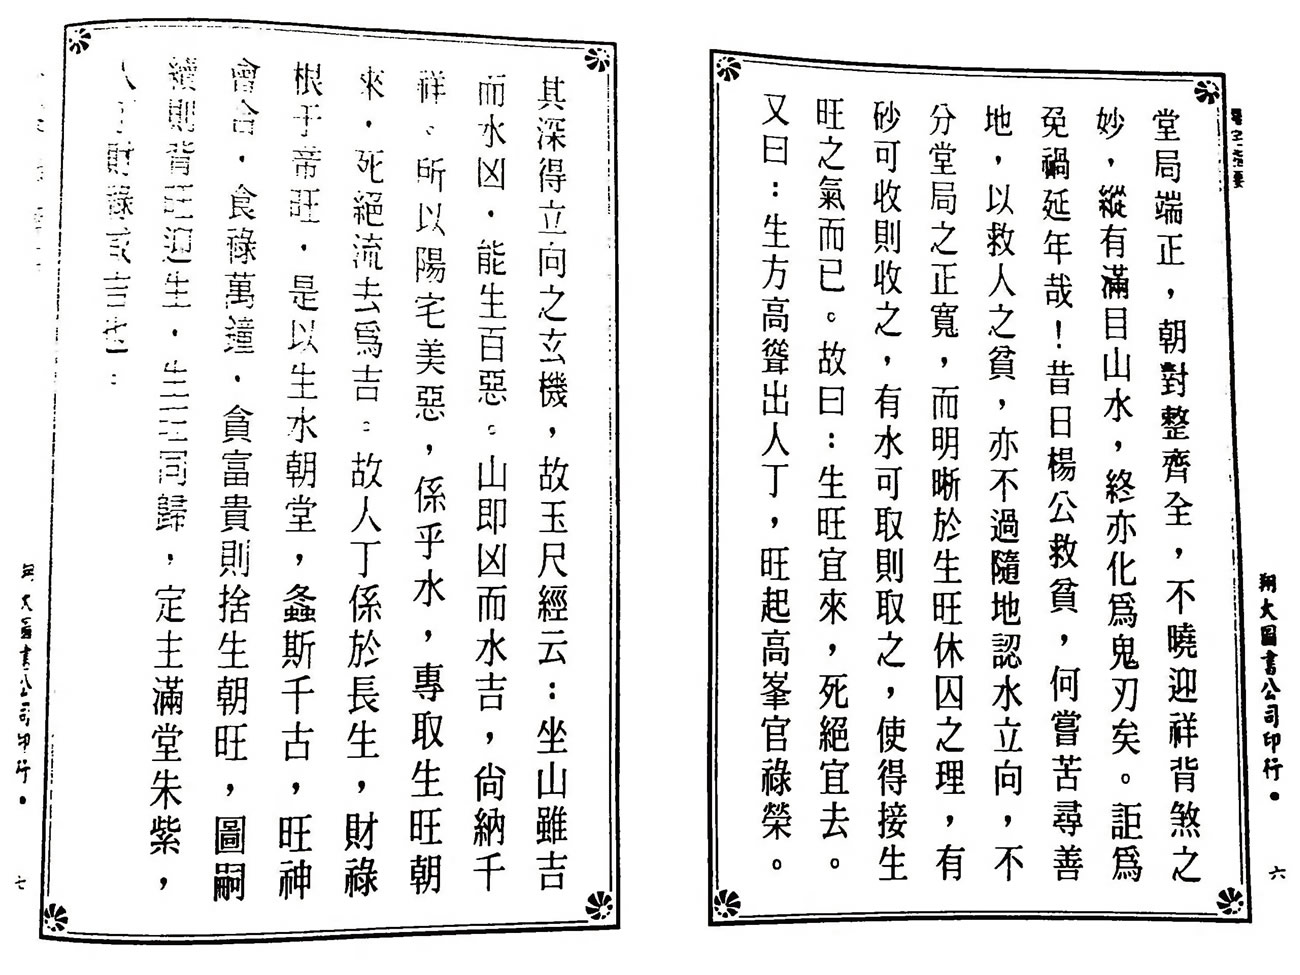 堂局端正，朝對整齊全，不曉迎祥背煞之
妙，縱有滿目山水，終亦化爲鬼刃矣。詎爲
免禍延年哉！昔日楊公救貧，何嘗苦尋善
地，以救人之貧，亦不過隨地認水立向，不
分堂局之正寬，而明晰於生旺休囚之理，有
砂可收則收之，有水可取則取之，使得接生
旺之氣而已。故曰：生旺宜來，死絕宜去。
又曰：生方高聳出人丁，旺起高峯官祿榮。
翔大圖書公司印行。
六
其深得立向之玄機，故玉尺經云：坐山雖吉
而水凶，能生百惡。山即凶而水吉，尙納千
祥。所以陽宅美惡，係乎水，專取生旺朝
來，死絕流去爲吉。故人丁係於長生，財祿
根于帝旺，是以生水朝堂，螽斯千古，旺神
會合，食祿萬鐘，貪富貴則捨生朝旺，圖嗣
續則背旺迎生，生旺同歸，定主滿堂朱紫，
人丁財祿
翔大圖書公司印行。
七